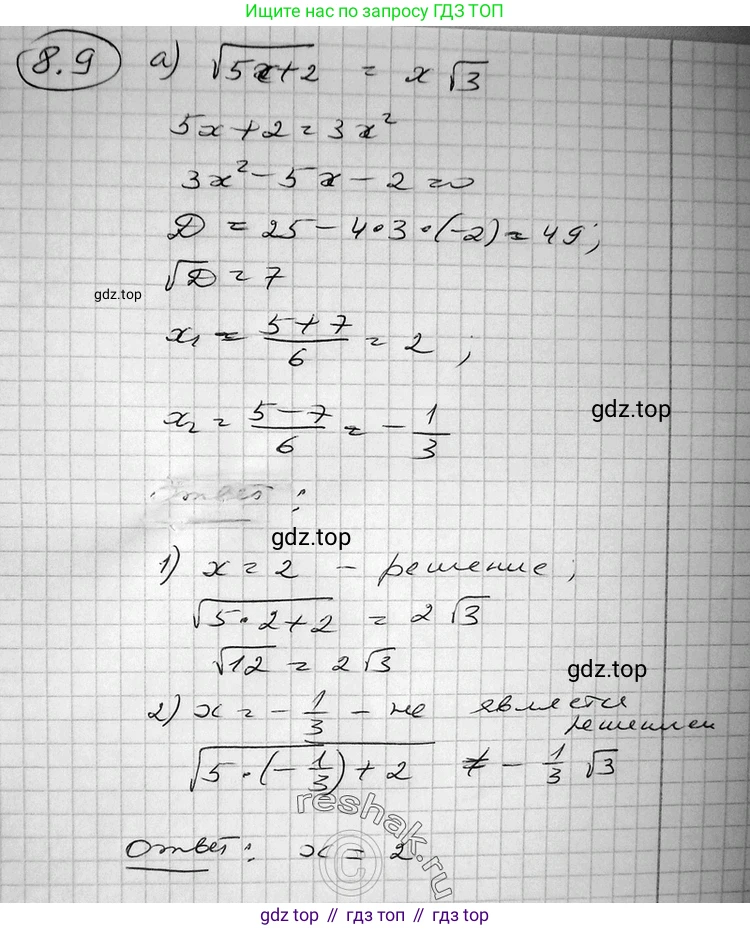 Ищите нас по запросу ГДЗ ТОП
8.9 а) √(5x+2) = x√3
5x+2=3x²
3x²-5x-2=0
D = 25-4·3·(-2)=49;
√D = 7
gdz.top
x₁ = (5+7)/6 = 2 ;
x₂ = (5-7)/6 = -1/3
gdz.top
Ответ :
gdz.top
1) x = 2 - решение ;
√(5·2+2) = 2√3
√12 = 2√3
gdz.top
2) x = -1/3 - не является
решением
√(5·(-1/3)+2) ≠ -1/3 √3
reshak.ru
©
Ответ: x = 2
gdz.top // гдз топ // gdz.top